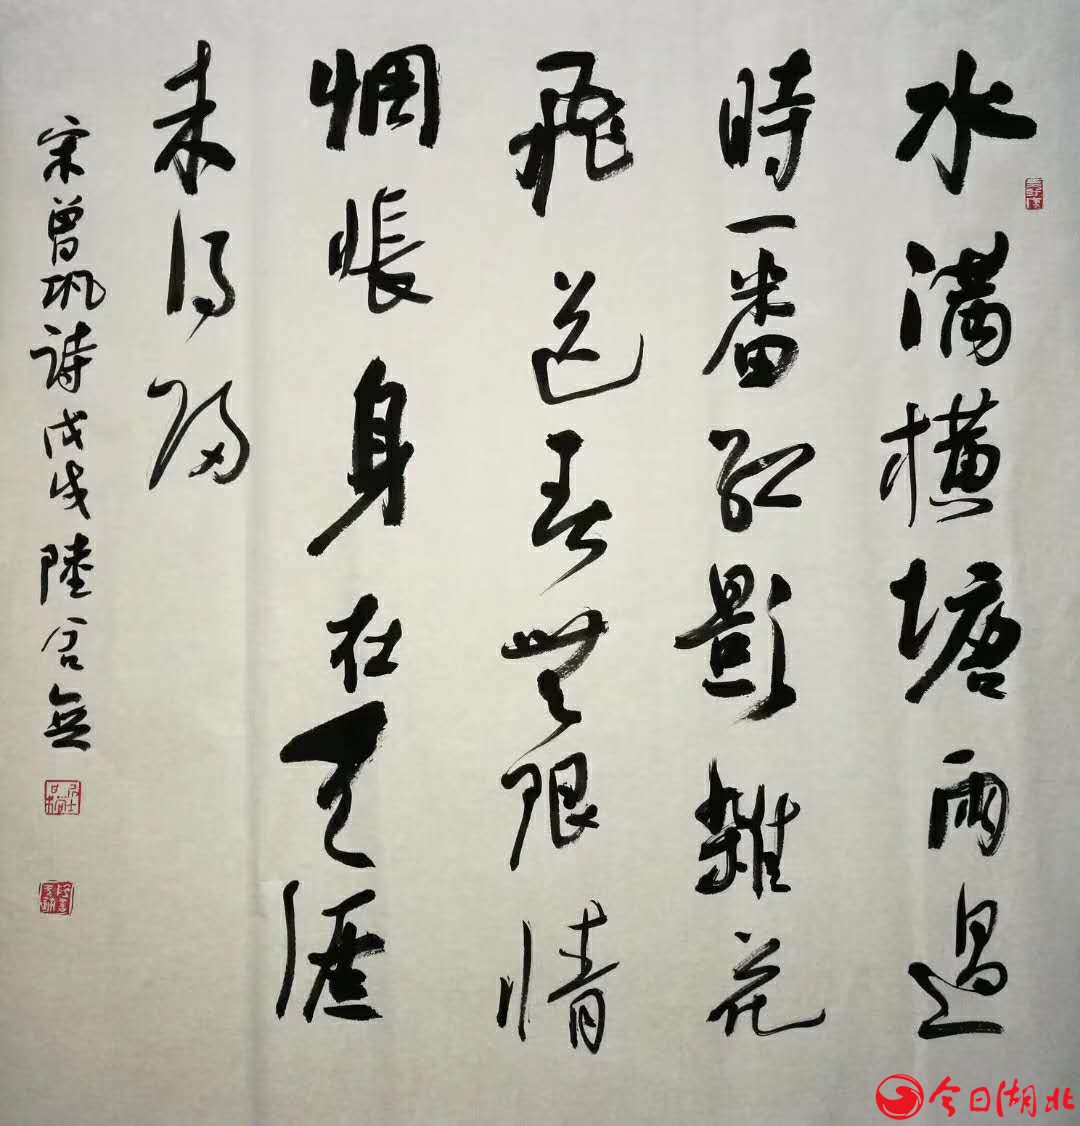 水滿橫塘雨過
時一番紅影雜花
飛送春無限情
惆悵身在天涯
未得歸
宋曾巩詩戊戌陸無
今日湖北